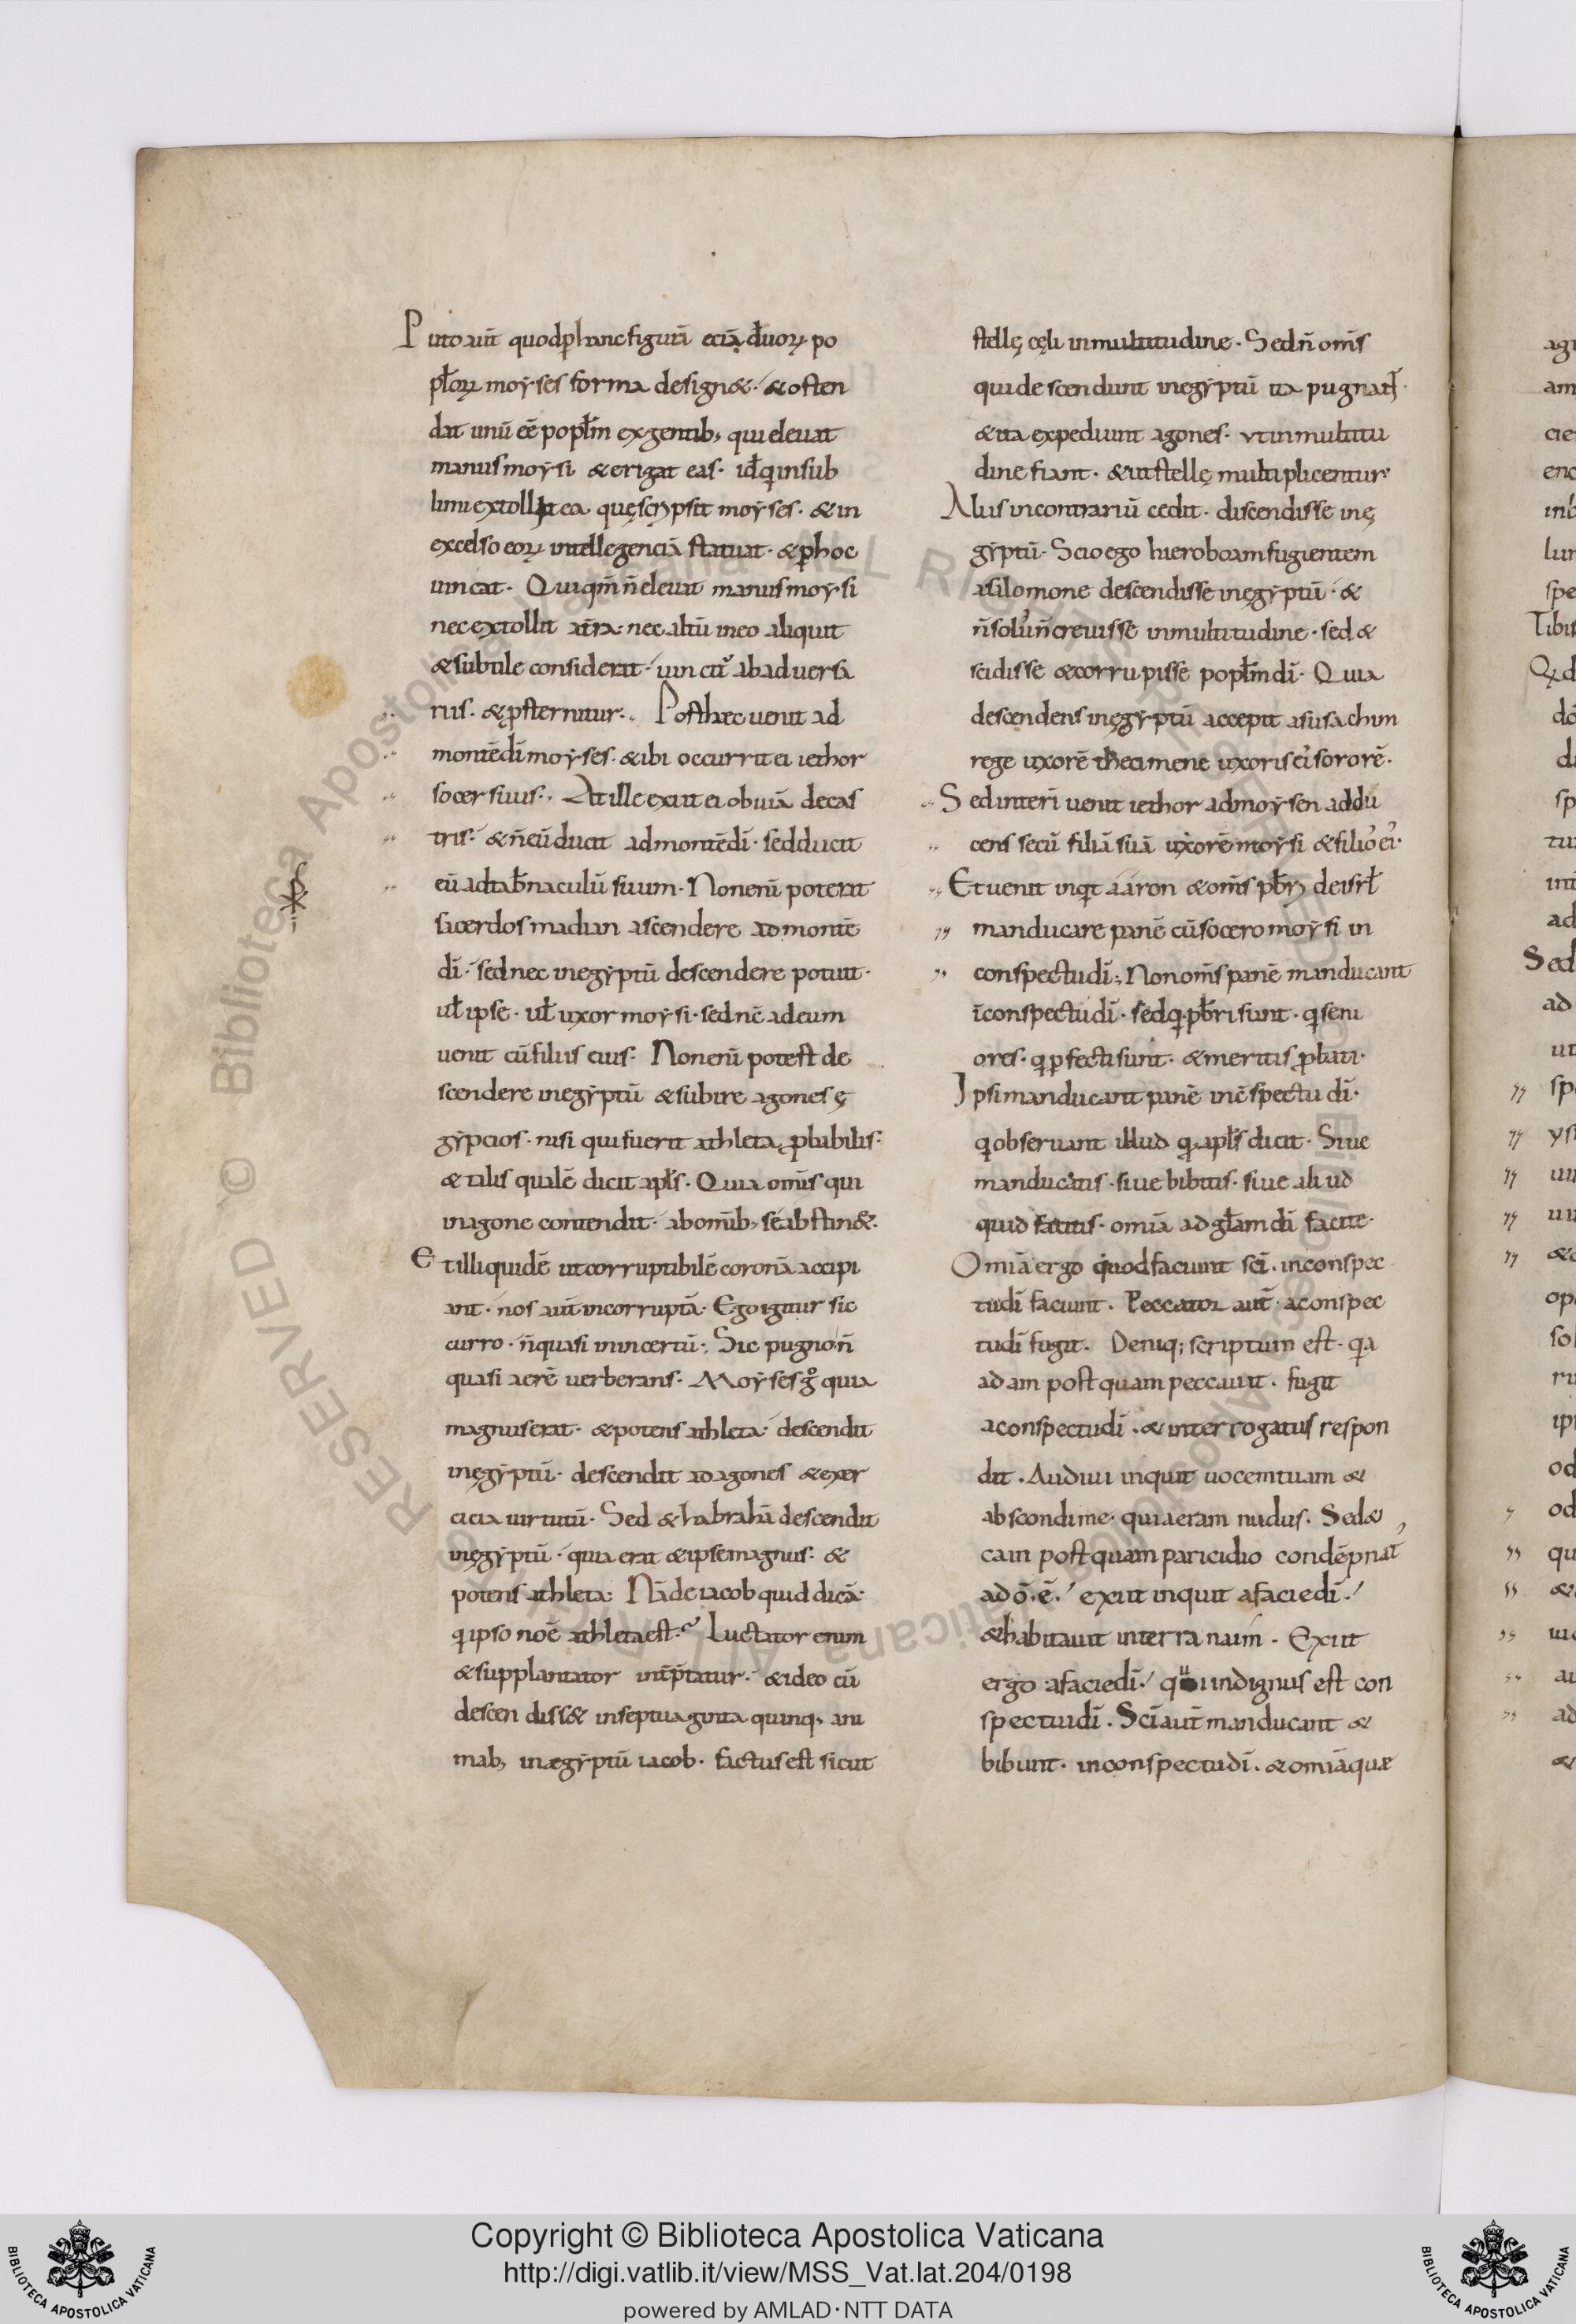 Puto aut̄ quod ꝑ hanc figurā eciā duoꝝ po
pl̄oꝝ moẏses forma design&· & often
dat unū eē popl̄m ex gentib; qui eleuat
manus moẏsi & erigat eas· id̄ q̇ in sub
limi extollit ea quę scripsit moẏses· & in
excelso eoꝝ intellegenciā statuat· & ꝑ hoc
uincat· Qui qm̄ n̄ eleuat manus moẏsi
nec extollit a tr̄a· nec altū in eo aliquit
& subtile considerat· uincit᷑ ab aduersa
riis· & ꝓsternitur· Post haec uenit ad
montē dī moẏses· & ibi occurrit ei iethor
socer suus· At ille exiit ei obuiā de cas
tris· & n̄ eū ducit ad montē dī· sed ducit
eū ad tab̄naculū suum· Non enī poterat
sacerdos madian ascendere ad montē
dī· sed nec in egẏptū descendere potuit·
ul̄ ipse· ul̄ uxor moẏsi· sed nc̄ ad eum
uenit cū filiis eius· Non enī potest de
scendere in egẏptū & subire agones ę
gẏpcios· nisi qui fuerit athleta ꝓbabilis·
& talis qualē dicit apl̄s· Quia omīs qui
in agone contendit· ab omīb; se abstin&·
Et illi quidē ut corruptibilē coronā accipi
ant· nos aut̄ incorruptā· Ego igitur sic
curro· n̄ quasi in incertū· Sic pugno n̄
quasi aerē uerberans· Moẏses g̊ quia
magnus erat· & potens athleta· descendit
in ęgẏptū· descendit ad agones & exer
cicia uirtutū· Sed & habrahā descendit
in ęgẏptū· quia erat & ipse magnus· &
potens athleta· Nā de iacob quid dicā·
q̇ ipso noē athleta est· Luctator enim
& supplantator int̄p̄tatur· & ideo cū
descendiss& in septuaginta quinq; ani
mab; in ægẏptū iacob· factus est sicut
stellę cęli in multitudine· Sed n̄ omīs
qui descendunt in egẏptū ita pugnant
& ita expediunt agones· ut in multitu
dine fiant· & ut stellę multiplicentur·
Aliis in contrariū cedit· discendisse in ę
gẏptū· Scio ego hieroboam fugientem
a salomone descendisse in ęgẏptū· &
n̄ solū n̄ creuisse in multitudine· sed &
scidisse & corrupisse popl̄m dī· Quia
descendens in ęgẏptū accepit a susachim
rege uxorē thecimene uxoris ei᷒ sororē·
Sed interī uenit iethor ad moẏsen addu
cens secū filiā suā uxorē moẏsi & filio᷒ ei᷒·
Et uenit inq̇t aaron & omīs pb̄ri de isrl̄
manducare panē cū socero moẏsi in
conspectu dī; Non omīs panē manducant
ī conspectu dī· sed q̇ pb̄ri sunt· q̇ seni
ores· q̇ ꝑfecti sunt· & meritis ꝓbati·
Ipsi manducant panē in c̄spectu dī·
q̇ obseruant illud q̇ apl̄s dicit· Siue
manducatis· siue bibitis· siue aliud
quid facitis· omīa ad gl̄am dī facite·
Omīa ergo quod faciunt scī· in conspec
tu dī faciunt· Peccator aut̄· a conspec
tu dī fugit· Deniq; scriptum est· q̇a
adam post quam peccauit· fugit
a conspectu dī· & interrogatus respon
dit· Audiui inquit uocem tuam &
abscondi me· quia eram nudus· Sed &
cain post quam paricidio condēpnat᷒
a dō ē· exiit inquit a facie dī·
& habitauit in terra naim· Exiit
ergo a facie dī· qui indignus est con
spectu dī· Scī aut̄ manducant &
bibunt· in conspectu dī· & omīa quæ
Copyright © Biblioteca Apostolica Vaticana
http://digi.vatlib.it/view/MSS_Vat.lat.204/0198
powered by AMLAD·NTT DATA